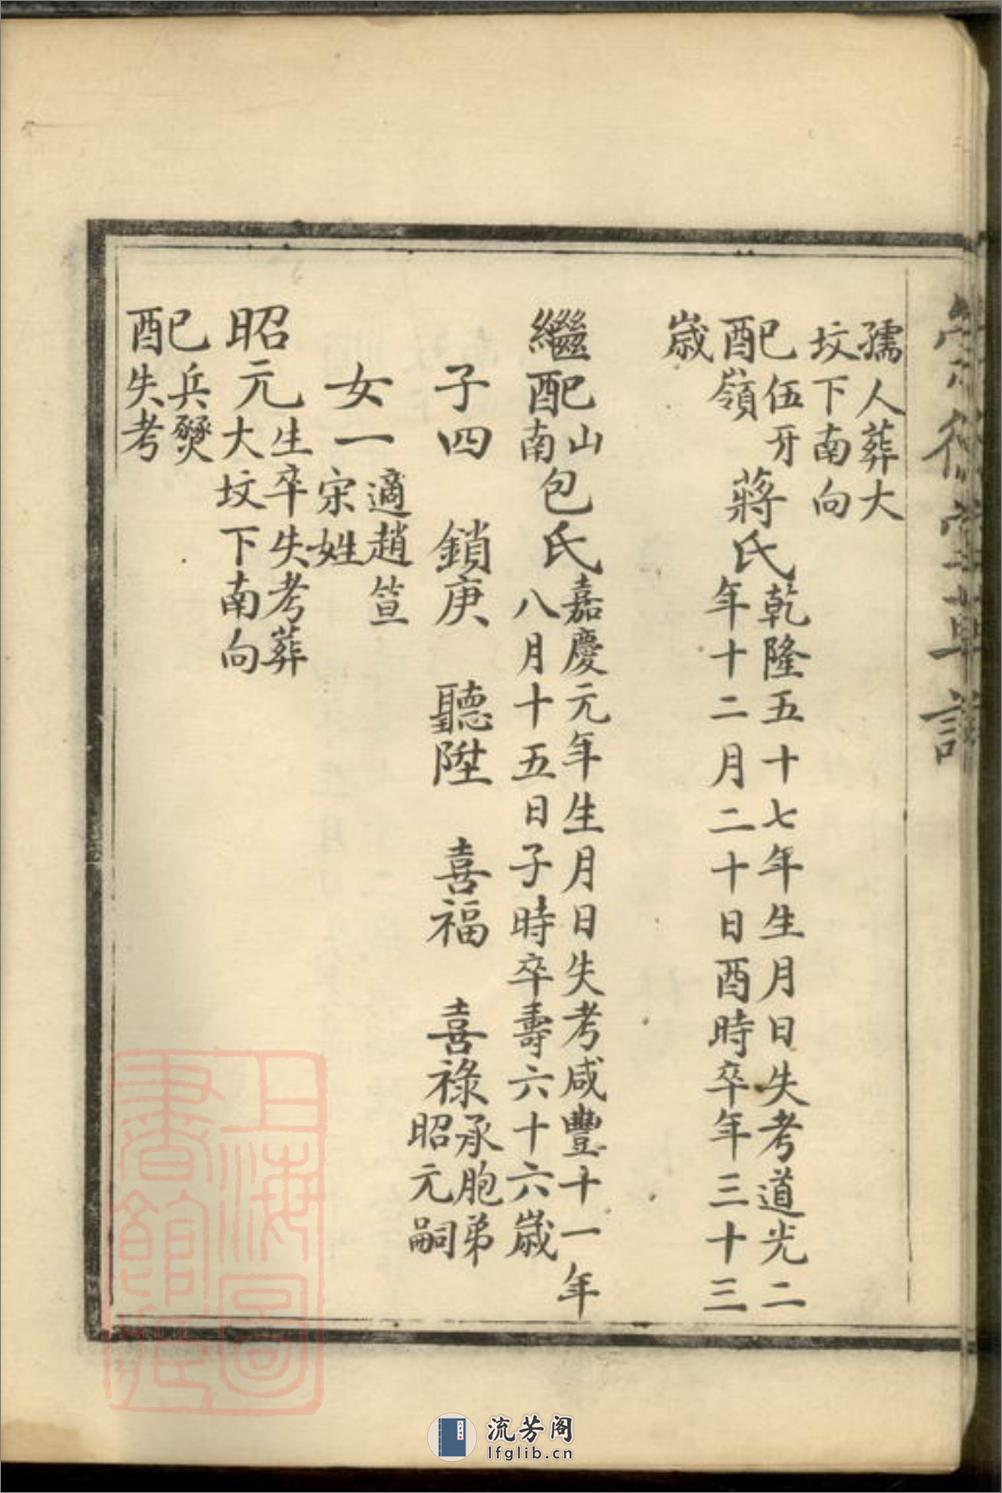 堂 譜
孺人葬大
坟下南向
配伍牙嶺蔣氏乾隆五十七年生月日失考道光二
年十二月二十日酉時卒年三十三
歲
繼配山南包氏嘉慶元年生月日失考咸豐十一年
八月十五日子時卒壽六十六歲
子四 鎖庚 聽陞 喜福 喜祿承胞弟
昭元嗣
女一適趙笪
宋姓
昭元生卒失考葬
大坟下南向
配兵燹
失考
上海圖書館藏
流芳阁
lfglib.cn